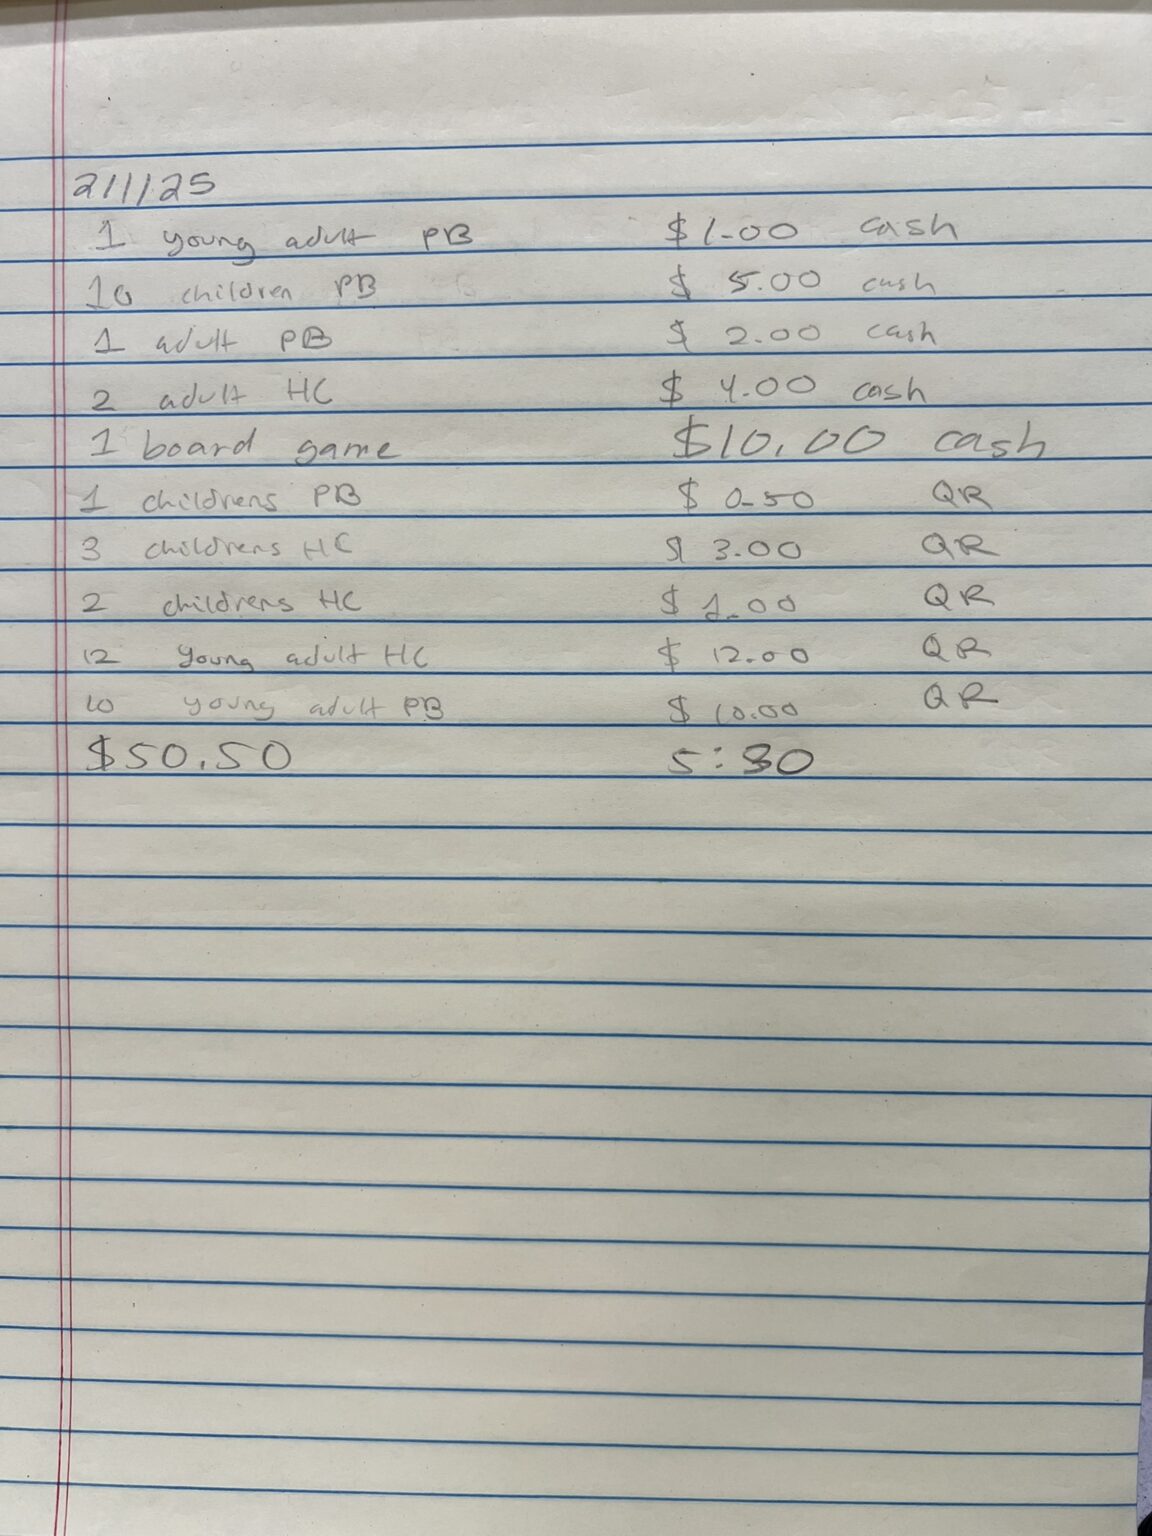 2/1/25
1 young adult PB $1.00 cash
10 children PB $ 5.00 cash
1 adult PB $ 2.00 cash
2 adult HC $ 4.00 cash
1 board game $10.00 cash
1 childrens PB $ 0.50 QR
3 childrens HC $ 3.00 QR
2 childrens HC $ QR
12 young adult HC $ 12.00 QR
10 young adult PB $ 10.00 QR
$50.50 5:30